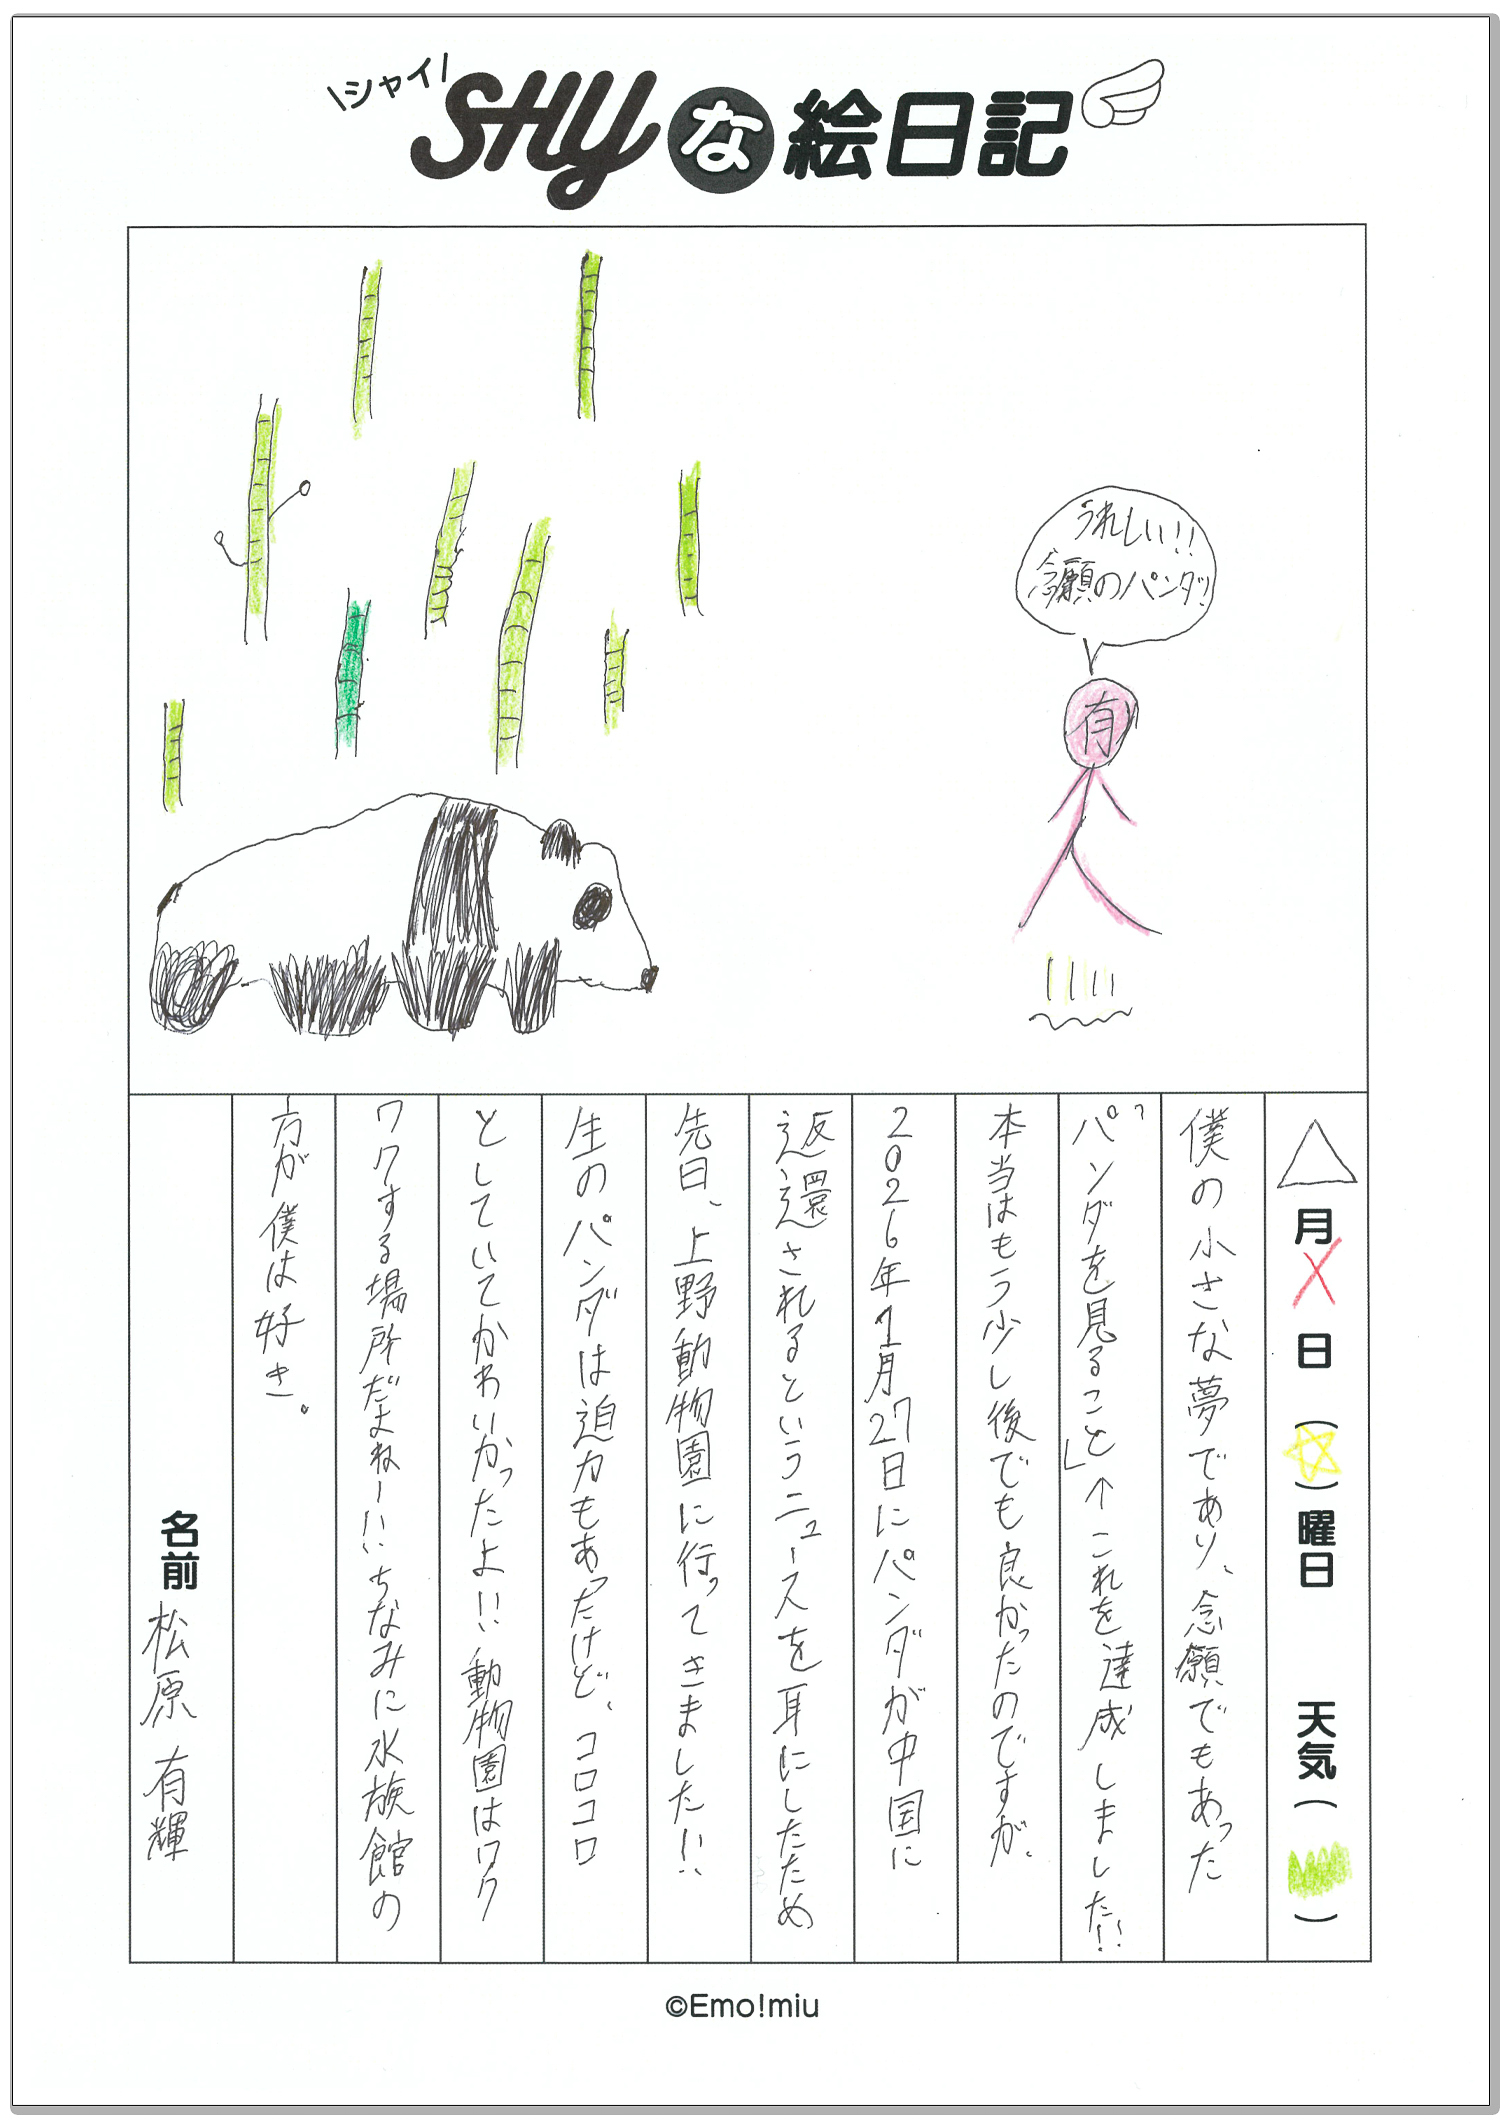 \シャイ/
SHYな絵日記
うれしい!!
念願のパンダ!
有
△月X日(☆)曜日 天気( )
僕の小さな夢であり、念願でもあった
「パンダを見ること」↑これを達成しました!!
本当はもう少し後でも良かったのですが、
2026年1月27日にパンダが中国に
返還されるというニュースを耳にしたため
先日、上野動物園に行ってきました!!
生のパンダは迫力もあったけど、コロコロ
としていてかわいかったよ!!動物園はワク
ワクする場所だよねー!!ちなみに水族館の
方が僕は好き。
名前 松原 有輝
©Emo!miu